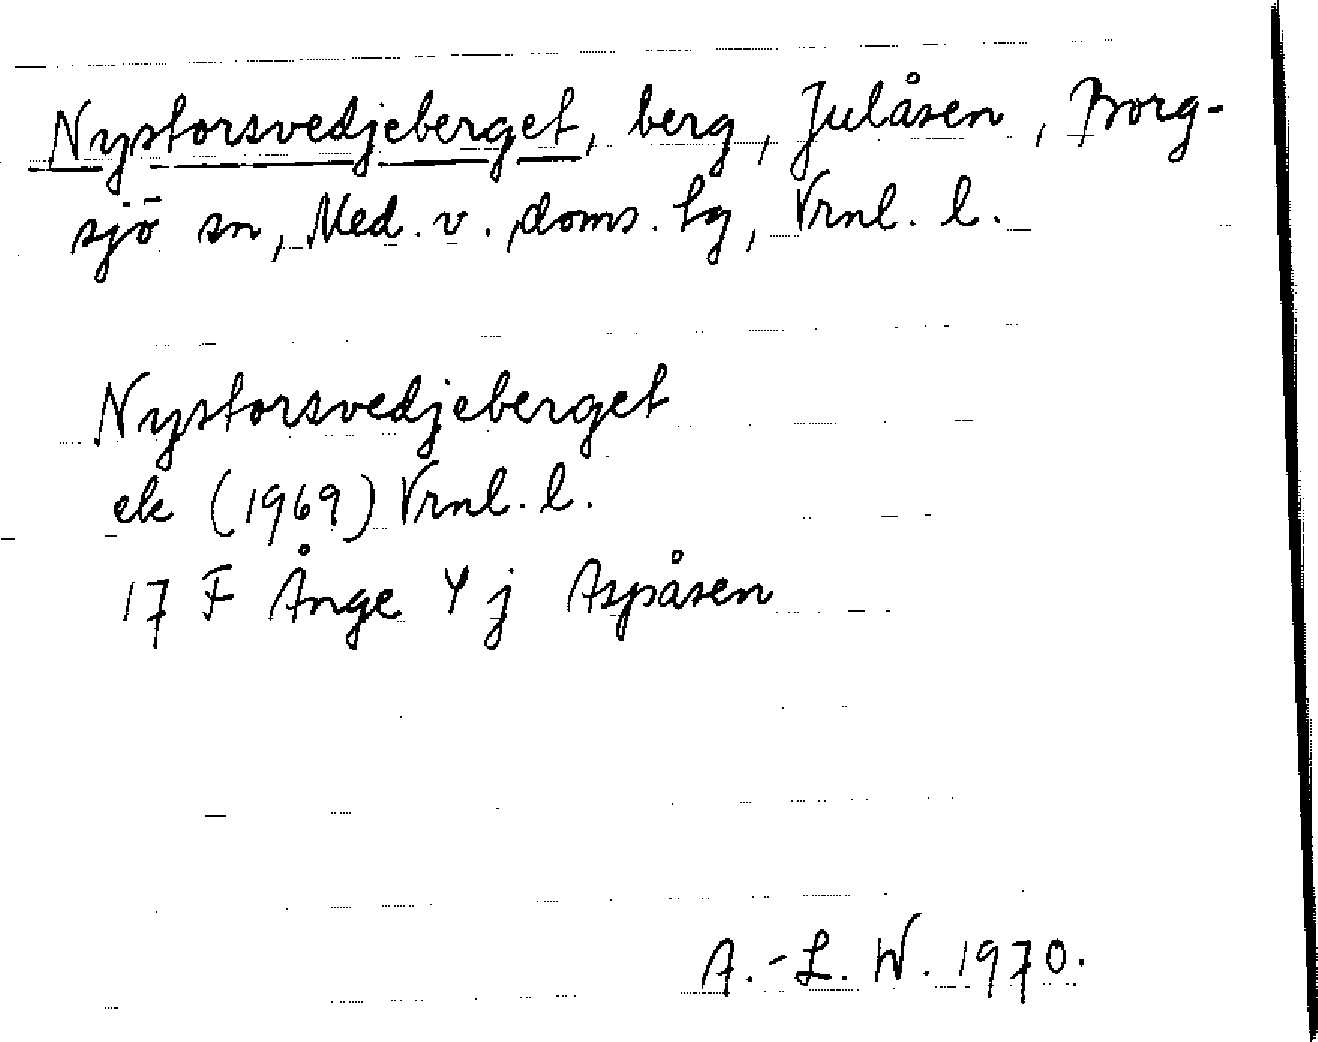 Nystorsvedjeberget, berg, Julåsen, Borg-
sjö sn, Med. v. doms. hg, Vrnl. l.
Nystorsvedjeberget
ek (1969) Vrnl. l.
17 F Ånge 4 j Aspåsen
A.-L. W. 1970.